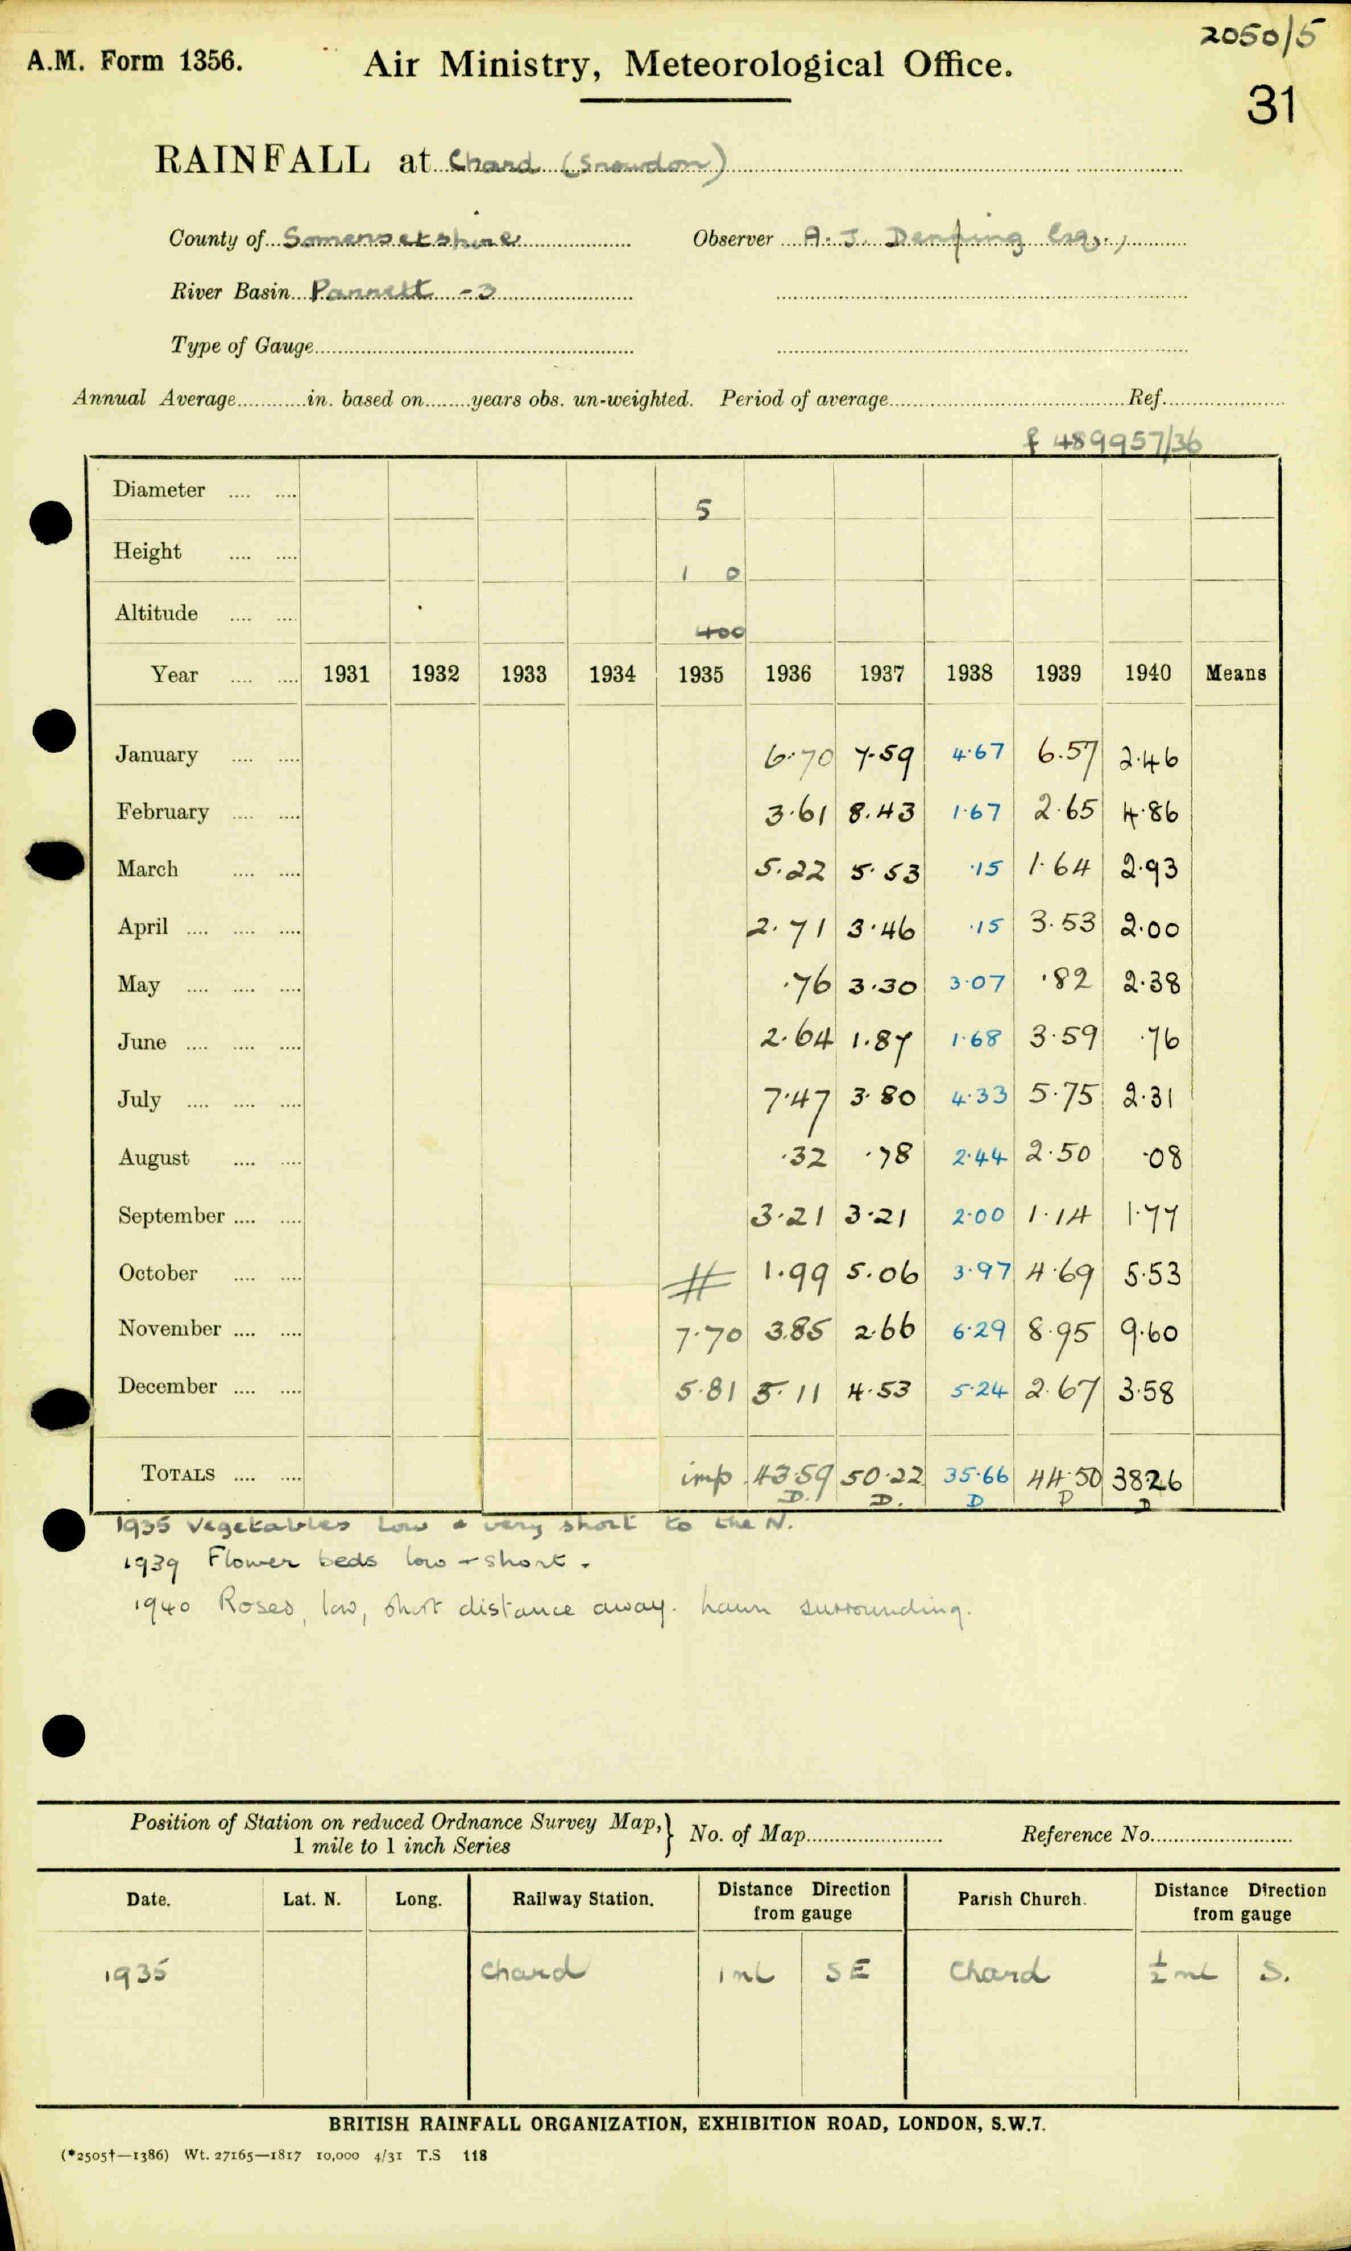 2050/5
A.M. Form 1356. Air Ministry, Meteorological Office.
31
RAINFALL at Chard (Snowdon)
County of Somersetshire Observer A. J. Esq.,
River Basin Parrett -3
Type of Gauge
Annual Average in. based on years obs. un-weighted. Period of average Ref.
f 489957/36
Diameter .... .... 5
Height .... .... 1 0
Altitude .... .... 400
Year .... .... 1931 1932 1933 1934 1935 1936 1937 1938 1939 1940 Means
January .... .... 6.70 7.59 4.67 6.57 2.46
February .... .... 3.61 8.43 1.67 2.65 4.86
March .... .... 5.22 5.53 .15 1.64 2.93
April .... .... .... 2.71 3.46 .15 3.53 2.00
May .... .... .... .76 3.30 3.07 .82 2.38
June .... .... .... 2.64 1.87 1.68 3.59 .76
July .... .... .... 7.47 3.80 4.33 5.75 2.31
August .... .... .32 .78 2.44 2.50 .08
September .... .... 3.21 3.21 2.00 1.14 1.77
October .... .... # 1.99 5.06 3.97 4.69 5.53
November .... .... 7.70 3.85 2.66 6.29 8.95 9.60
December .... .... 5.81 5.11 4.53 5.24 2.67 3.58
TOTALS .... .... imp. 43.59 50.22 35.66 44.50 38.26
D. D. D D D
1935 Vegetables low & very short to the N.
1939 Flower beds low + short.
1940 Roses, low, short distance away. Lawn surrounding.
Position of Station on reduced Ordnance Survey Map, } No. of Map Reference No.
1 mile to 1 inch Series
Date. Lat. N. Long. Railway Station. Distance Direction from gauge Parish Church. Distance Direction from gauge
1935 Chard 1 ml SE Chard ½ ml S.
BRITISH RAINFALL ORGANIZATION, EXHIBITION ROAD, LONDON, S.W.7.
(*2505†—1386) Wt. 27165—1817 10,000 4/31 T.S 118